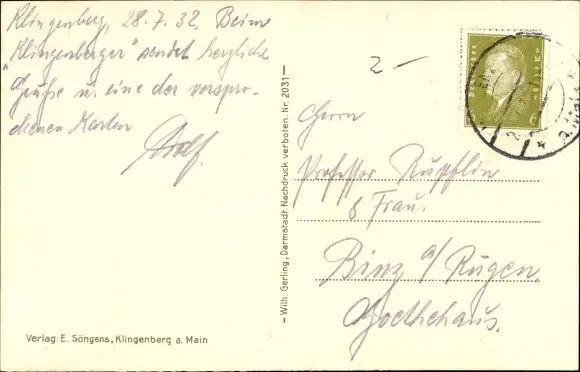 Klingenberg, 28.7.32. Beim
"Klingenberger" sendet herzliche
Grüße u. eine der verspro-
chenen Karten
Verlag: E. Söngens, Klingenberg a. Main
— Wilh. Gerling, Darmstadt Nachdruck verboten. Nr. 2031 —
2 —
Herrn
Professor Rupflin
& Frau.
Binz a/ Rügen
Goethehaus.
6
a. Main